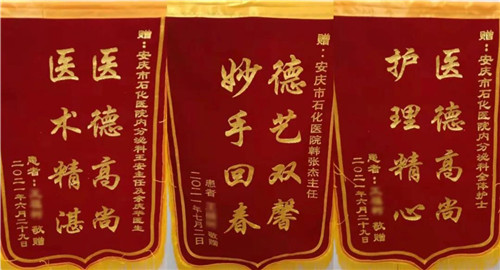 赠：安庆市石化医院内分泌科王安主任及余庆平医生
医德高尚
医术精湛
患者： 敬赠
二〇二一年六月二十九日
赠：安庆市石化医院韩张杰主任
德艺双馨
妙手回春
患者 敬赠
二〇二一年七月二日
赠：安庆市石化医院内分泌科全体护士
医德高尚
护理精心
患者： 敬赠
二〇二一年六月二十九日